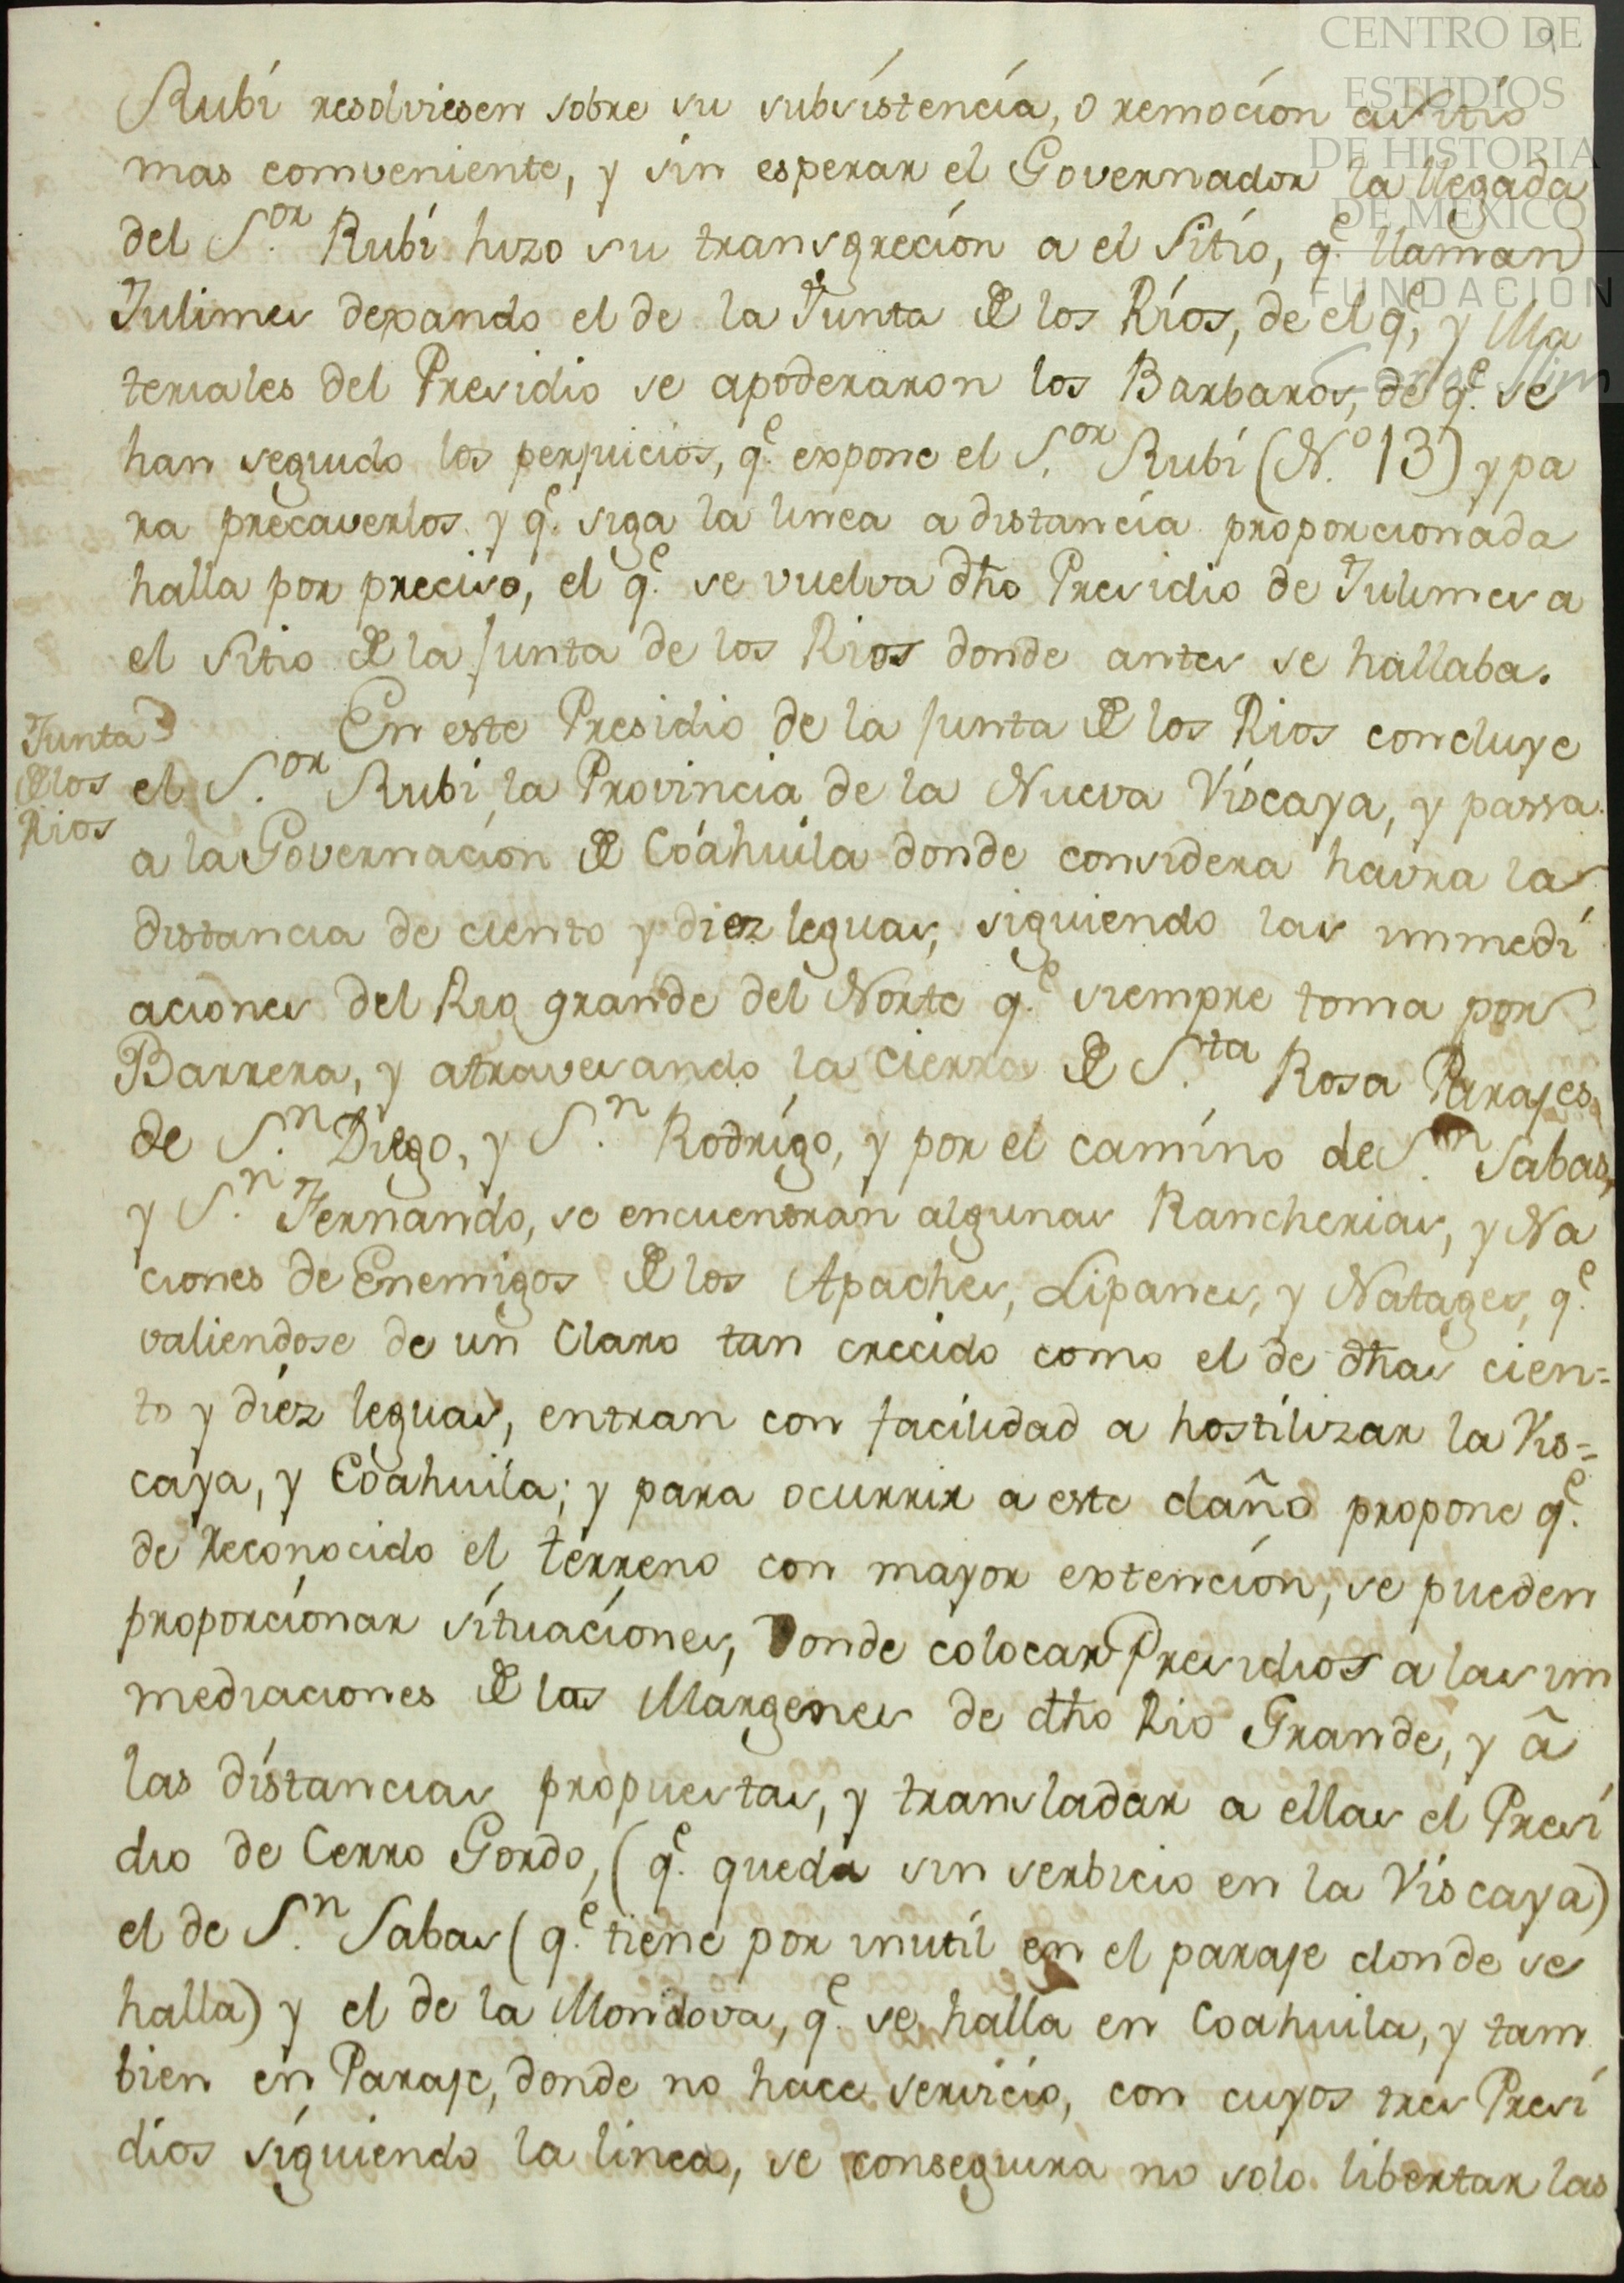 CENTRO DE
ESTUDIOS
DE HISTORIA
DE MÉXICO
FUNDACIÓN
Carlos Slim
9
Rubí resolviesen sobre su subsistencia, o remocion a sitio
mas comveniente, y sin esperar el Governador la llegada
del S.or Rubí hizo su transgrecion a el Sitio, q.e llaman
Julimes dexando el de la Junta de los Ríos, de el q.e, y Ma
teriales del Presidio se apoderaron los Barbaros, de q.e se
han seguido los perjuicios, q.e expone el S.or Rubí (N.o 13) y pa
ra precaverlos y q.e siga la linea a distancia proporcionada
halla por preciso, el q.e se vuelva dho Presidio de Julimes a
el Sitio de la Junta de los Rios donde antes se hallaba.
Junta
de los
Rios
En este Presidio de la Junta de los Rios concluye
el S.or Rubí la Provincia de la Nueva Víscaya, y passa
a la Governacion de Cóahuila donde considera havra la
distancia de ciento y diez leguas, siguiendo las immedi
aciones del Rio grande del Norte q.e siempre toma por
Barrera, y atravesando la Cierra de S.ta Rosa Parajes
de S.n Diego, y S.n Rodrígo, y por el camíno de S.n Sabas,
y S.n Fernando, se encuentran algunas Rancherias, y Na
ciones de Enemigos de los Apaches, Lipanes, y Natages, q.e
valiendose de un Claro tan crecido como el de dhas cien=
to y diéz leguas, entran con facilidad a hostilizar la Vis=
caya, y Coahuila; y para ocurrir a este daño propone q.e
de Reconocido el terreno con mayor extencíon, se pueden
proporcionar sítuaciones, Donde colocar Presidios a las im
mediaciones de las Margenes de dho Rio Grande, y â
las dístancias propuestas, y transladar a ellas el Presi
dio de Cerro Gordo, (q.e queda sin serbicio en la Víscaya)
el de S.n Sabas (q.e tiene por inutíl en el paraje donde se
halla) y el de la Mondova, q.e se halla en Coahuila, y tam
bien en Paraje, donde no hace servicio, con cuyos tres Presi
dios síguiendo la linea, se conseguira no solo libertar las